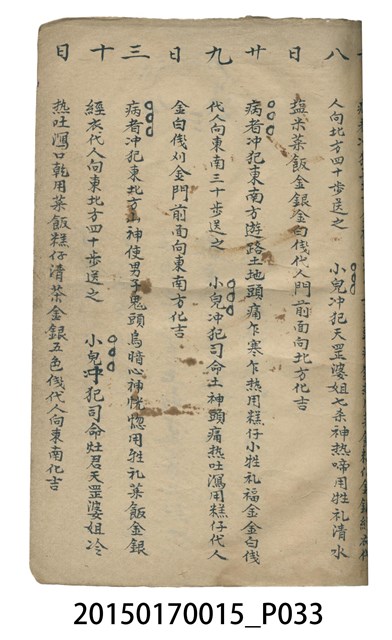 八
人向北方四十步送之　小兒冲犯天罡婆姐七杀神热啼用牲礼清水
日
盐米菜飯金銀金白伐代人門前面向北方化吉
廿
病者冲犯東南方遊路土地頭痛乍寒乍热用糕仔小牲礼福金金白伐
九
代人向東南三十步送之　小兒冲犯司命土神頭痛热吐瀉用糕仔代人
日
金白伐刈金門前面向東南方化吉
三
病者冲犯東北方山神使男子鬼頭烏暗心神恍惚用牲礼菜飯金銀
十
經衣代人向東北方四十步送之　小兒冲犯司命灶君天罡婆姐冷
日
热吐瀉口乾用菜飯糕仔清茶金銀五色伐代人向東南化吉
20150170015_P033